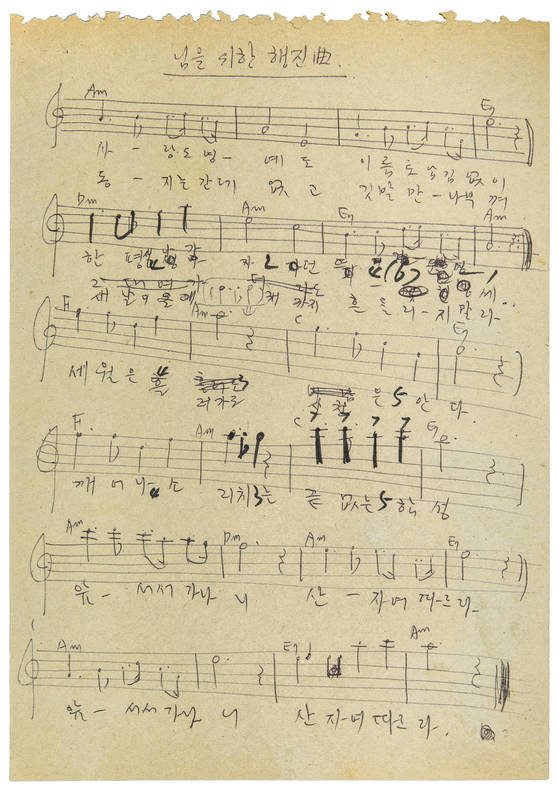 님을 위한 행진曲.
Am E7
사 - 랑도 명 - 예 도 이름도 남김 없이
동 - 지는 간데 없 고 깃발만 - 나부껴
Dm Am E7 Am
한 평생 나가자 던
새 날이 올 때 까지 흔들리 - 지 말라
F Am C E7
세 월은 흘
러가도 산천 은 안 다
F Am C E7
깨 어나 소 리치는 끝 없는 함 성
Am Dm Am E7
앞 - 서서 가나 니 산 - 자여 따르라
Am E7 Am
앞 - 서서 가나 니 산 자여 따르 라.